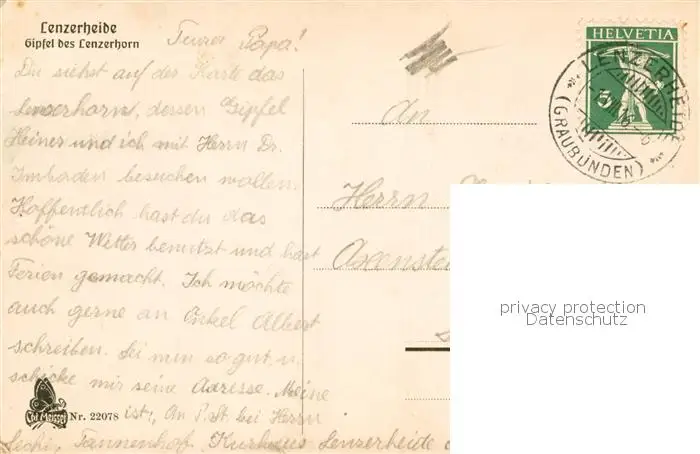 Lenzerheide
Gipfel des Lenzerhorn
Teurer Papa!
Du siehst auf der Karte das
Lenzerhorn, dessen Gipfel
Heiner und ich mit Herrn Dr.
Imboden besuchen wollen.
Hoffentlich hast du das
schöne Wetter benutzt und hast
Ferien gemacht. Ich möchte
auch gerne an Onkel Albert
schreiben. Sei nun so gut u.
schicke mir seine Adresse. Meine
ist: An P. St. bei Herrn
Lechi, Tannenhof, Kurhaus Lenzerheide
Nr. 22078
An
Herrn
HELVETIA
5
LENZERHEIDE
(GRAUBÜNDEN)
privacy protection
Datenschutz